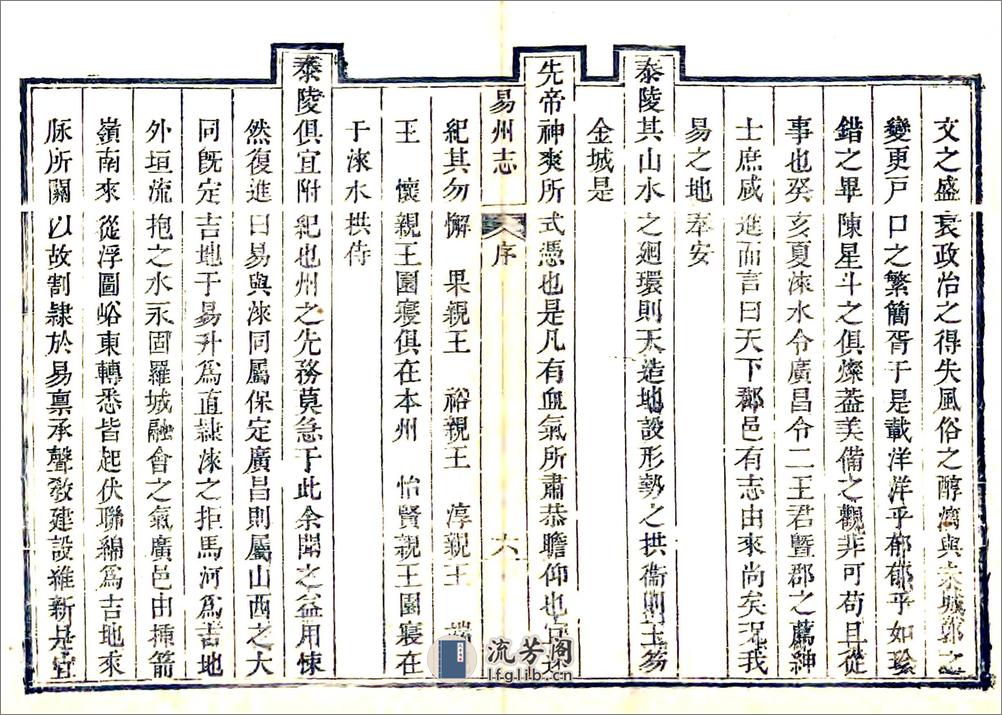 文之盛衰政治之得失風俗之醇漓與夫城郭之
變更戸口之繁簡胥于是載洋洋乎郁郁乎如珍
錯之畢陳星斗之俱燦葢美備之觀非可苟且從
事也癸亥夏淶水令廣昌令二王君曁郡之薦紳
士庶咸進而言曰天下郡邑有志由來尚矣況我
易之地奉安
泰陵其山水之廻環則天造地設形勢之拱衞則玉笏
金城是
先帝神爽所式憑也是凡有血氣所肅恭瞻仰也
易州志
序
六
紀其勿懈 果親王 裕親王 淳親王 端
王 懷親王園寢俱在本州 怡賢親王園寢在
于淶水拱侍
泰陵俱宜附紀也州之先務莫急于此余聞之益用悚
然復進曰易與淶同屬保定廣昌則屬山西之大
同旣定吉地于易升爲直隷淶之拒馬河爲吉地
外垣流抱之水永固羅城融會之氣廣邑由揷箭
嶺南來從浮圖峪東轉悉皆起伏聯綿爲吉地來
脉所關以故割隷於易禀承聲敎建設維新是宜
流芳阁
lfglib.cn